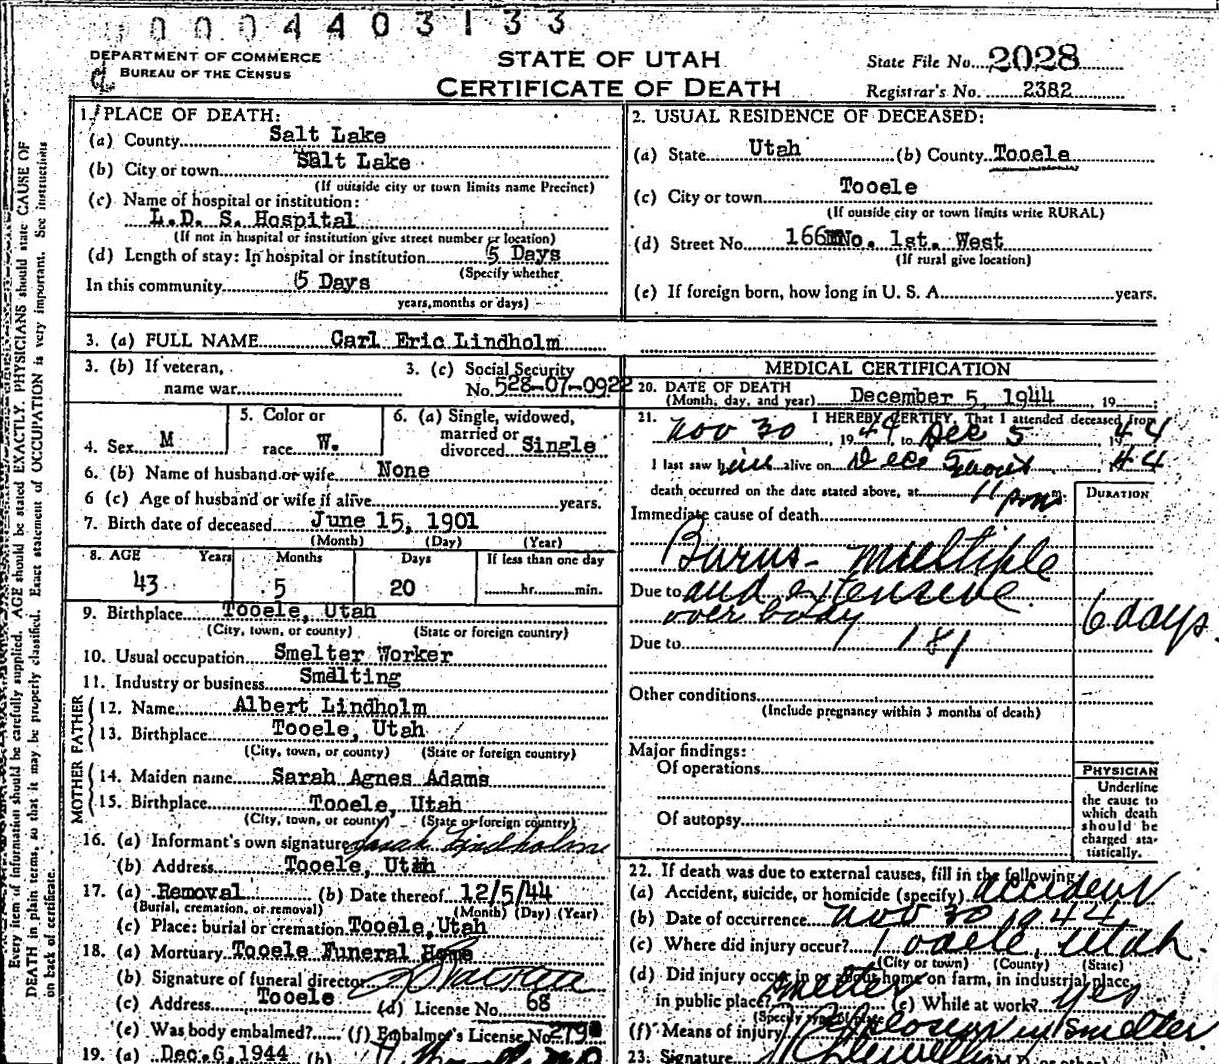 0004403133
DEPARTMENT OF COMMERCE
BUREAU OF THE CENSUS
STATE OF UTAH
CERTIFICATE OF DEATH
State File No. 2028
Registrar's No. 2382
Every item of information should be carefully supplied. AGE should be stated EXACTLY. PHYSICIANS should state CAUSE OF
DEATH in plain terms, so that it may be properly classified. Exact statement of OCCUPATION is very important. See instructions
on back of certificate.
1. PLACE OF DEATH:
(a) County Salt Lake
(b) City or town Salt Lake
(If outside city or town limits name Precinct)
(c) Name of hospital or institution:
L.D. S. Hospital
(If not in hospital or institution give street number or location)
(d) Length of stay: In hospital or institution 5 Days
(Specify whether
In this community 5 Days
years, months or days)
2. USUAL RESIDENCE OF DECEASED:
(a) State Utah (b) County Tooele
(c) City or town Tooele
(If outside city or town limits write RURAL)
(d) Street No. 166 No. 1st. West
(If rural give location)
(e) If foreign born, how long in U. S. A. years.
3. (a) FULL NAME Carl Eric Lindholm
3. (b) If veteran,
name war
3. (c) Social Security
No. 528-07-0922
4. Sex M
5. Color or
race W.
6. (a) Single, widowed,
married or
divorced Single
6. (b) Name of husband or wife None
6 (c) Age of husband or wife if alive years.
7. Birth date of deceased June 15, 1901
(Month) (Day) (Year)
8. AGE Years Months Days If less than one day
43 5 20 hr. min.
9. Birthplace Tooele, Utah
(City, town, or county) (State or foreign country)
10. Usual occupation Smelter Worker
11. Industry or business Smelting
FATHER
12. Name Albert Lindholm
13. Birthplace Tooele, Utah
(City, town, or county) (State or foreign country)
MOTHER
14. Maiden name Sarah Agnes Adams
15. Birthplace Tooele, Utah
(City, town, or county) (State or foreign country)
16. (a) Informant's own signature Sarah Lindholm
(b) Address Tooele, Utah
17. (a) Removal (b) Date thereof 12/5/44
(Burial, cremation, or removal) (Month) (Day) (Year)
(c) Place: burial or cremation Tooele, Utah
18. (a) Mortuary Tooele Funeral Home
(b) Signature of funeral director
(c) Address Tooele (d) License No. 68
(e) Was body embalmed? (f) Embalmer's License No.
19. (a) Dec. 6, 1944 (b)
MEDICAL CERTIFICATION
20. DATE OF DEATH
(Month, day, and year) December 5, 1944, 19
21. I HEREBY CERTIFY, That I attended deceased from
Nov 30 1944 to Dec 5 1944
I last saw him alive on Dec 5 44
death occurred on the date stated above, at 11 pm m.
DURATION
Immediate cause of death
Burns - multiple
Due to and extensive
over body
6 days.
Due to 181
Other conditions
(Include pregnancy within 3 months of death)
Major findings:
Of operations
Of autopsy
PHYSICIAN
Underline
the cause to
which death
should be
charged sta-
tistically.
22. If death was due to external causes, fill in the following:
(a) Accident, suicide, or homicide (specify) accident
(b) Date of occurrence Nov 30 1944
(c) Where did injury occur? Tooele, Utah.
(City or town) (County) (State)
(d) Did injury occur in or about home, on farm, in industrial place,
in public place? Smelter (e) While at work? yes
(Specify type of place
(f) Means of injury Explosion in Smelter
23. Signature